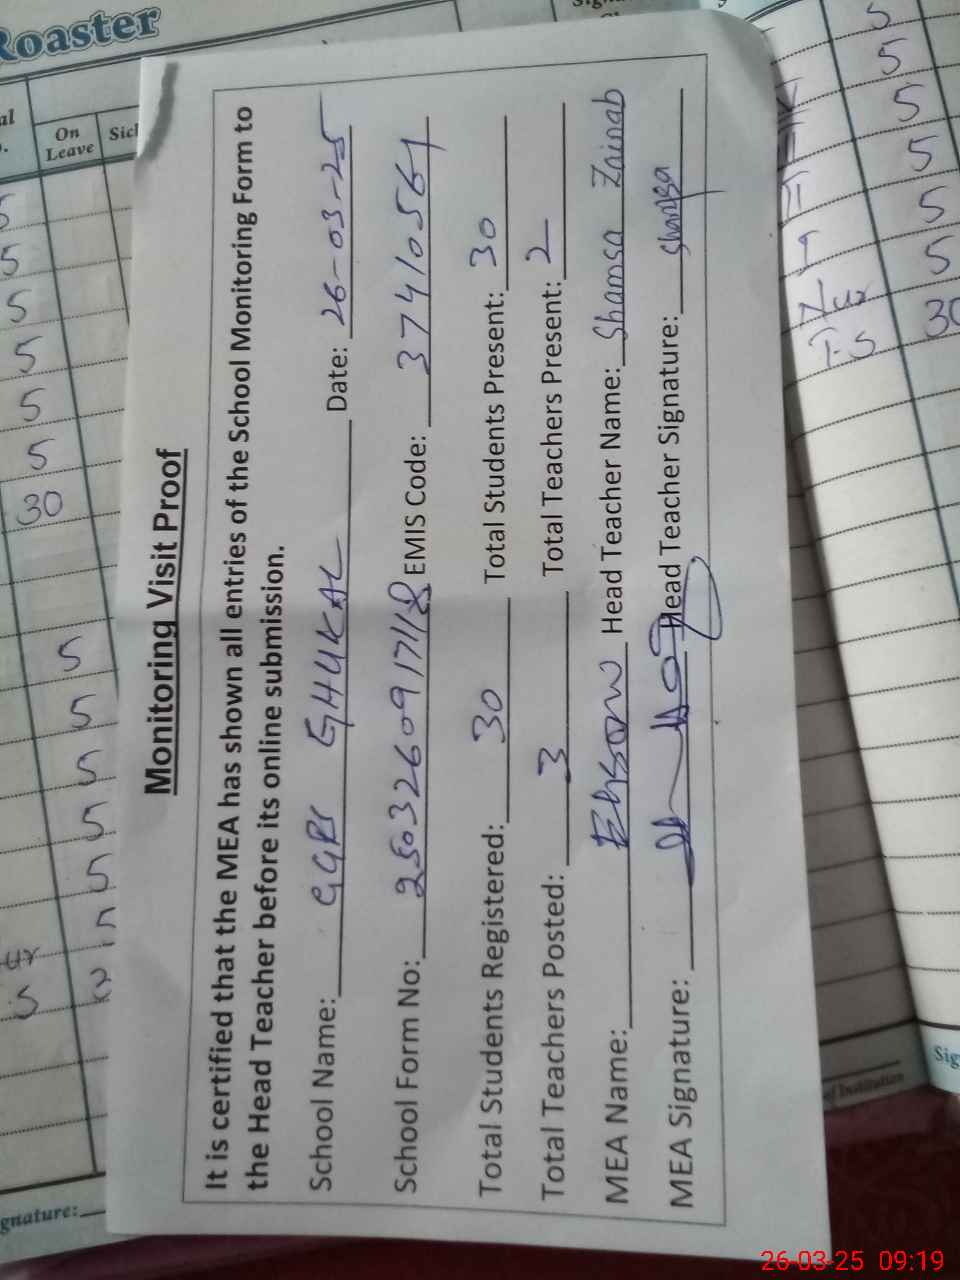 Roaster
On Leave
Monitoring Visit Proof
It is certified that the MEA has shown all entries of the School Monitoring Form to
the Head Teacher before its online submission.
School Name: GGPS GHUKAL Date: 26-03-25
School Form No: EMIS Code: 37410561
Total Students Registered: 30 Total Students Present: 30
Total Teachers Posted: 3 Total Teachers Present: 2
MEA Name: Head Teacher Name: Shamsa Zainab
MEA Signature: Head Teacher Signature: Shamsa
5
5
5
5
5
5
30
5
5
5
5
5
5
5
5
5
5
5
Nur 5
T.S 30
gnature:
of Institution
Sig
26-03-25 09:19